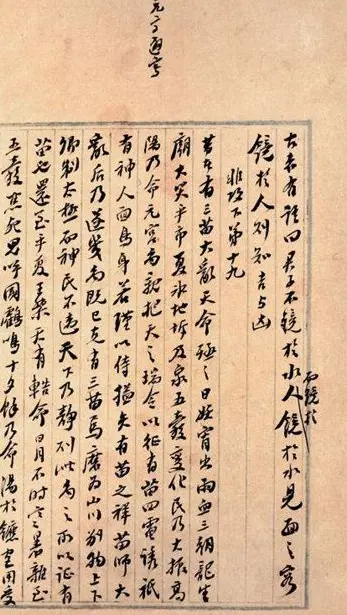 古者有語曰君子不鏡於水人鏡於水見面之容
而鏡於
鏡於人則知吉與凶
非攻下第十九
昔者有三苗大亂天命殛之日妖宵出雨血三朝龍生
廟犬哭乎市夏冰地坼及泉五穀變化民乃大振高
陽乃命元宮禹親把天之瑞令以征有苗四電誘祗
有神人面鳥身若瑾以侍搤矢有苗之祥苗師大
亂后乃遂幾禹既已克有三苗焉磨爲山川別物上下
卿制大極而神民不違天下乃靜則此禹之所以征有
苗也還至乎夏王桀天有命日月不時寒暑雜至
五穀焦死鬼呼國鶴鳴十夕餘乃命湯於鑣宮用受